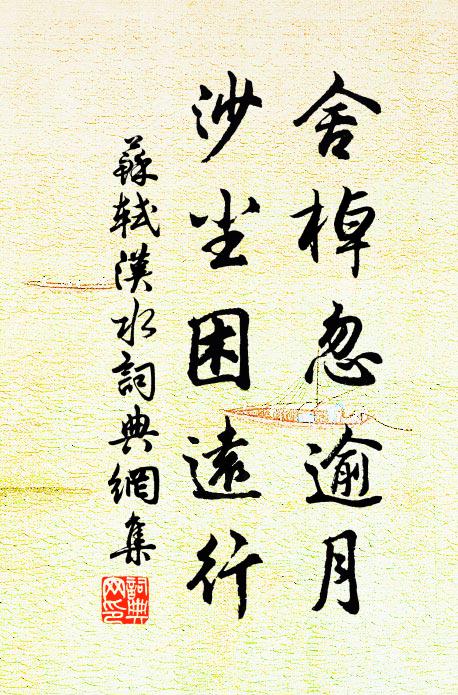 舍棹忽逾月
沙尘困遠行
蘇軾漢水詞典網集
詞典网印